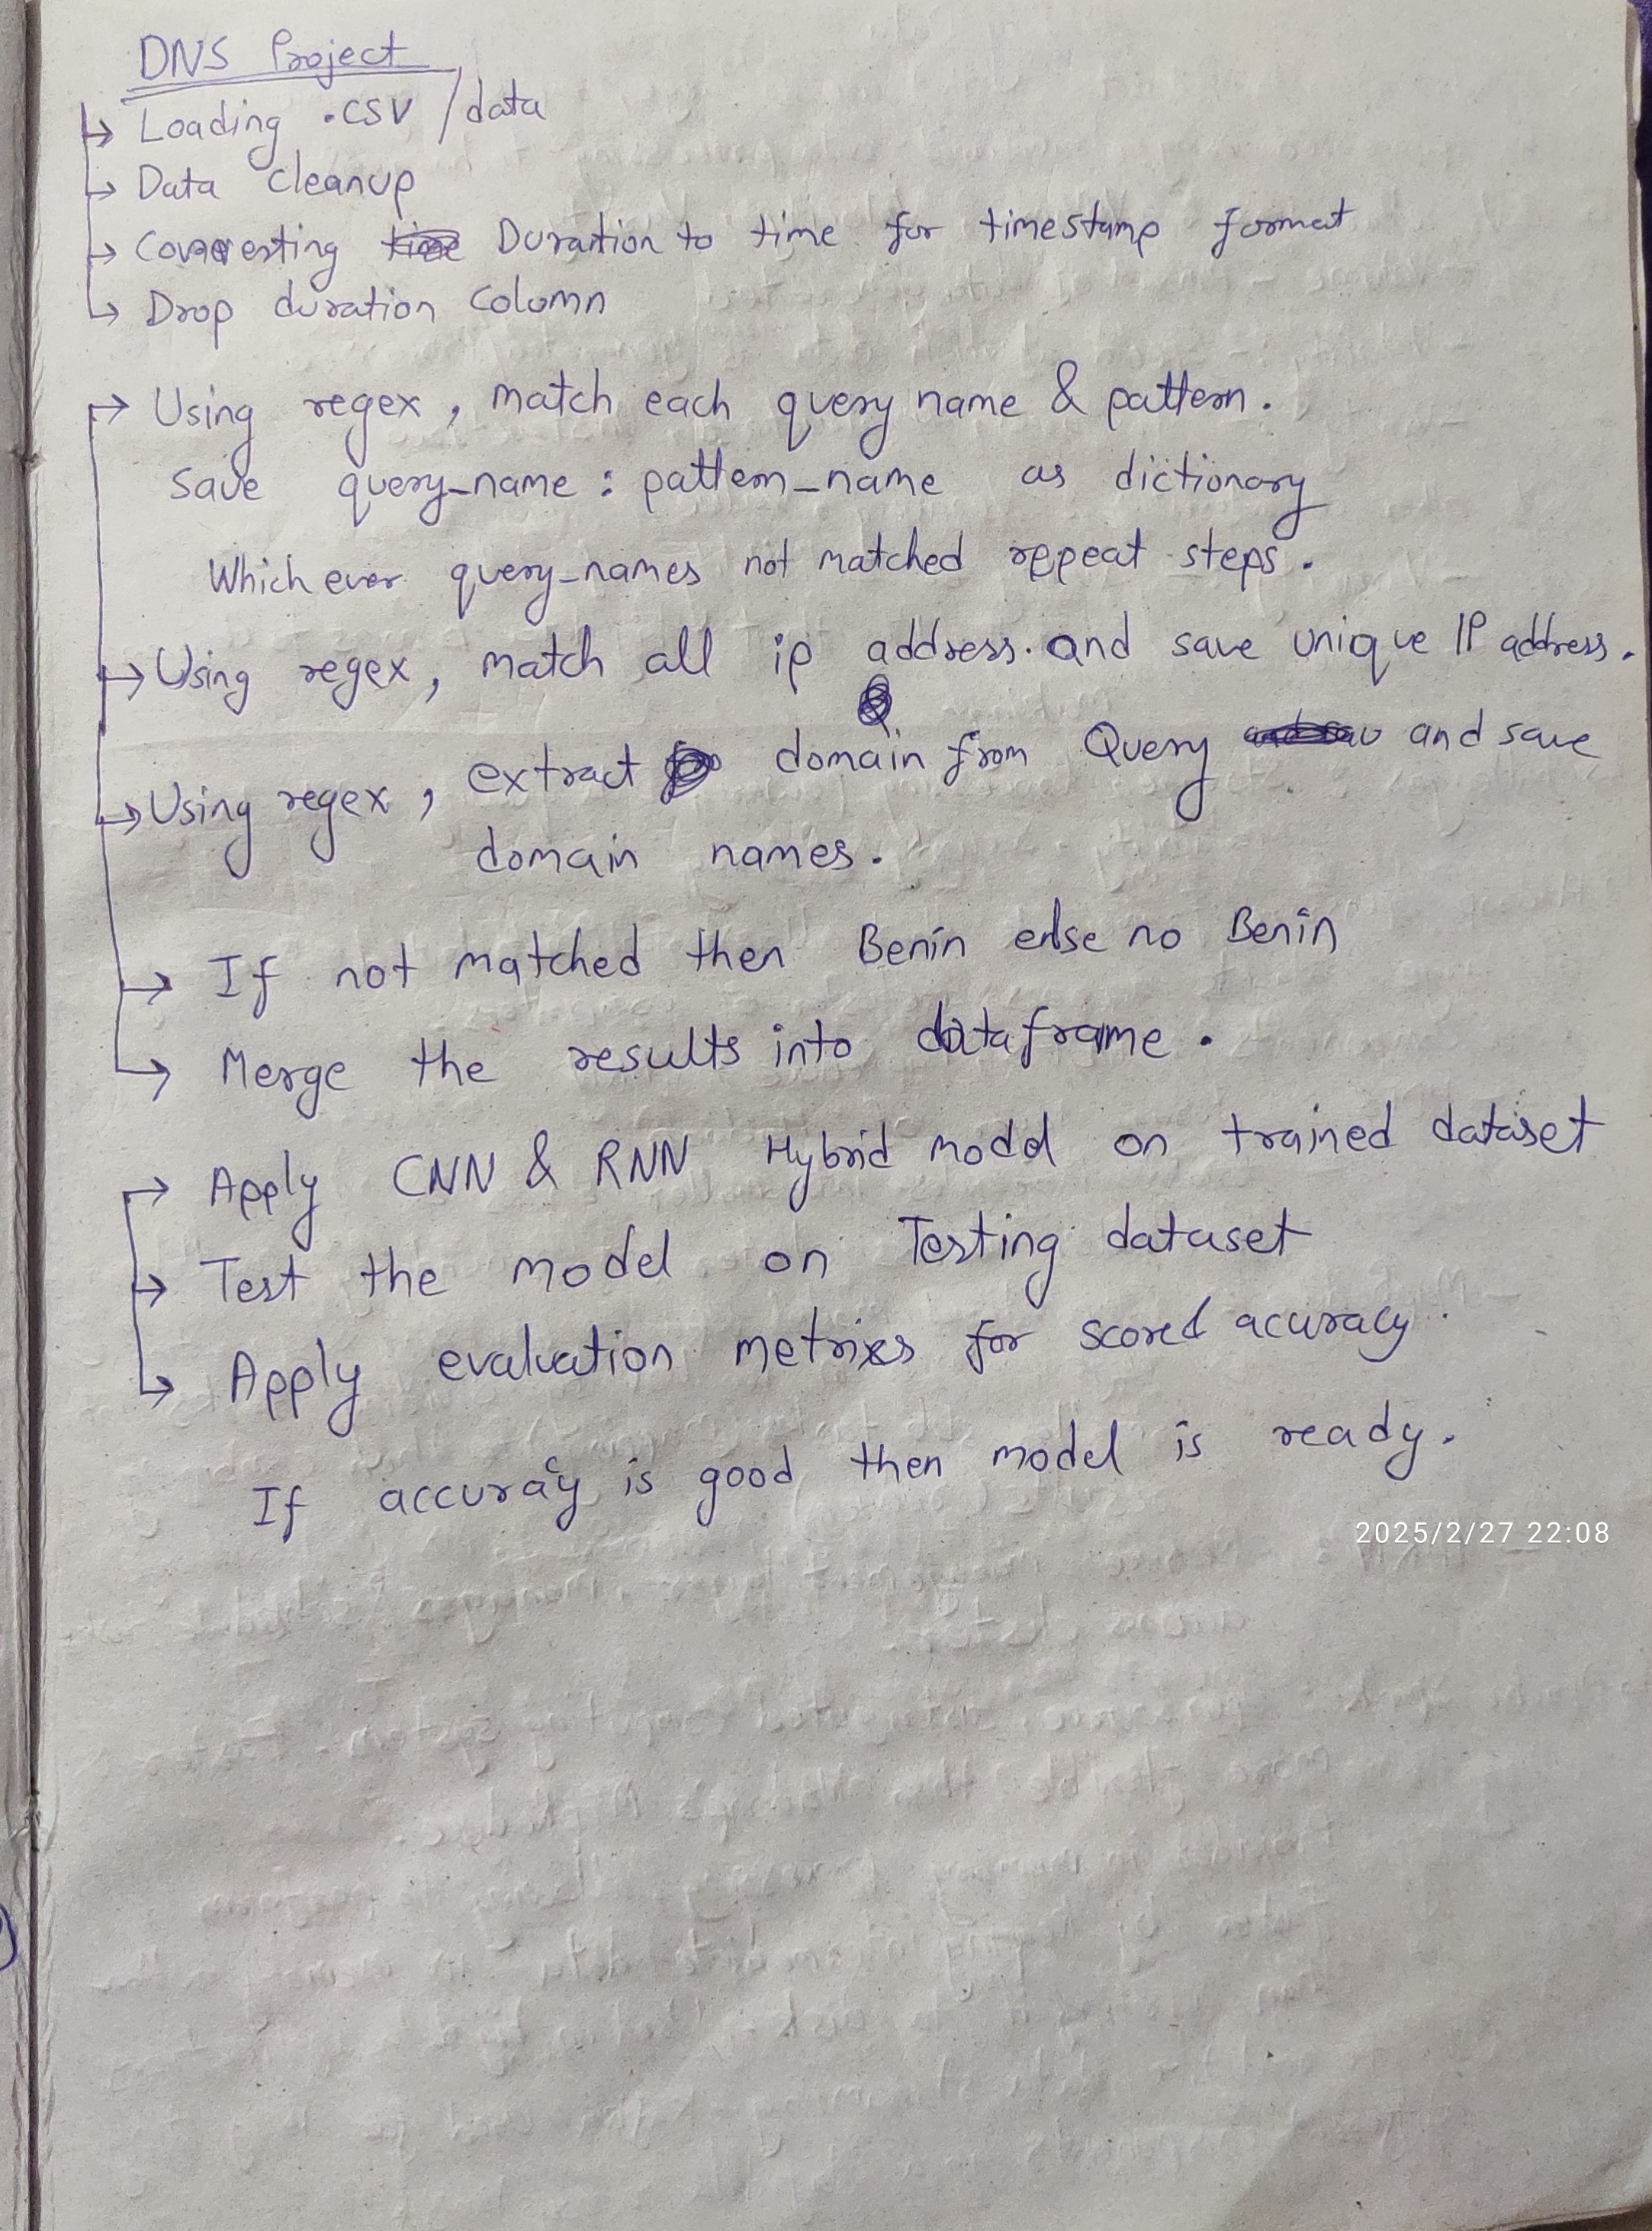 DNS Project
Loading .CSV / data
Data cleanup
Converting Duration to time for timestamp format
Drop duration column
Using regex, match each query name & pattern.
Save query_name : pattern_name as dictionary
Which ever query_names not matched repeat steps.
Using regex, match all ip address. and save unique IP address.
Using regex, extract domain from Query and save
domain names.
If not matched then Benin else no Benin
Merge the results into dataframe.
Apply CNN & RNN Hybrid model on trained dataset
Test the model on Testing dataset
Apply evaluation metrixs for scored accuracy.
If accuracy is good then model is ready.
2025/2/27 22:08